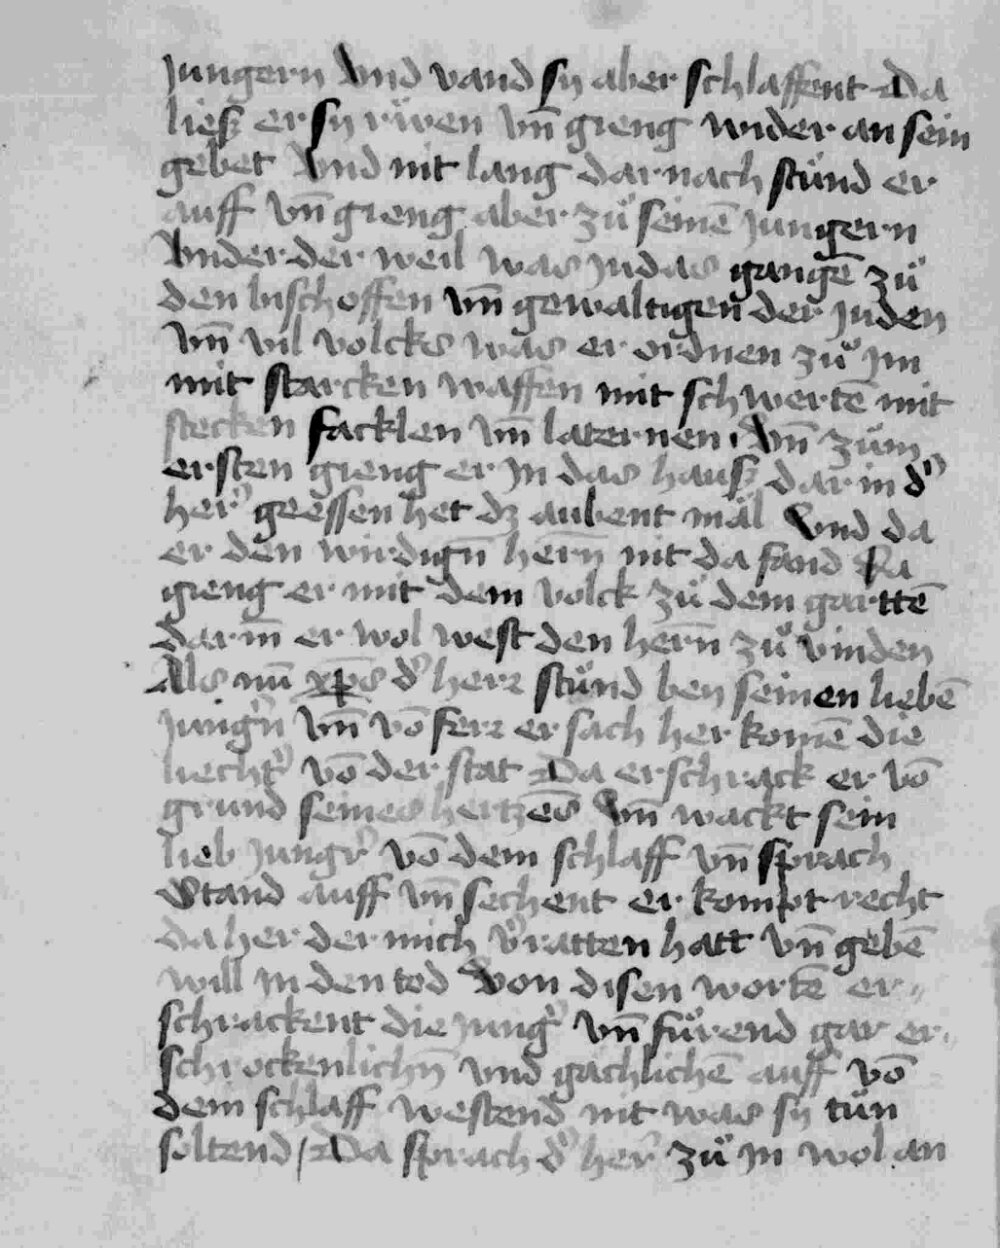 Jungern Vnd vand sy aber schlaffent Da
liesz er sy rüwen vn̄ gieng wider an sein
gebet Vnd nit lang dar nach stůnd er
auff vn̄ gieng aber zů seinē Jungern
Vnder der weil was Judas gangē zů
den bischoffen vn̄ gewaltigen der Juden
vn̄ vil volcks was er ordnen zů Im
mit starcken waffen mit schwertē mit
stecken facklen vn̄ laternen · Vn̄ zům
ersten gieng er In das hausz dar in d'
her' geessen het dz aubent mäl Vnd da
er den wirdign̄ hern̄ nit da fand Da
gieng er mit dem volck zů dem garttē
dar in̄ er wol west den hern̄ zů vinden
Als nu̅ xp̄s d' herr stůnd bey seinen liebē
Jung'n vn̄ vō ferr er sach her komē die
liecht' vō der stat Da erschrack er vō
grund seines hertzēs Vn̄ wackt sein
lieb Jung'r vō dem schlaff vn̄ sprach
Stand auff vn̄ sechent er kompt recht
da her der mich v'ratten hatt vn̄ gebē
will In den tod Von disen wortē er„
schrackent die Jung' vn̄ fůrend gar er„
schrockenlichn̄ vnd gächlichē auff vō
dem schlaff westend nit was sy tůn
soltend / Da sprach d' her' zů In wol an